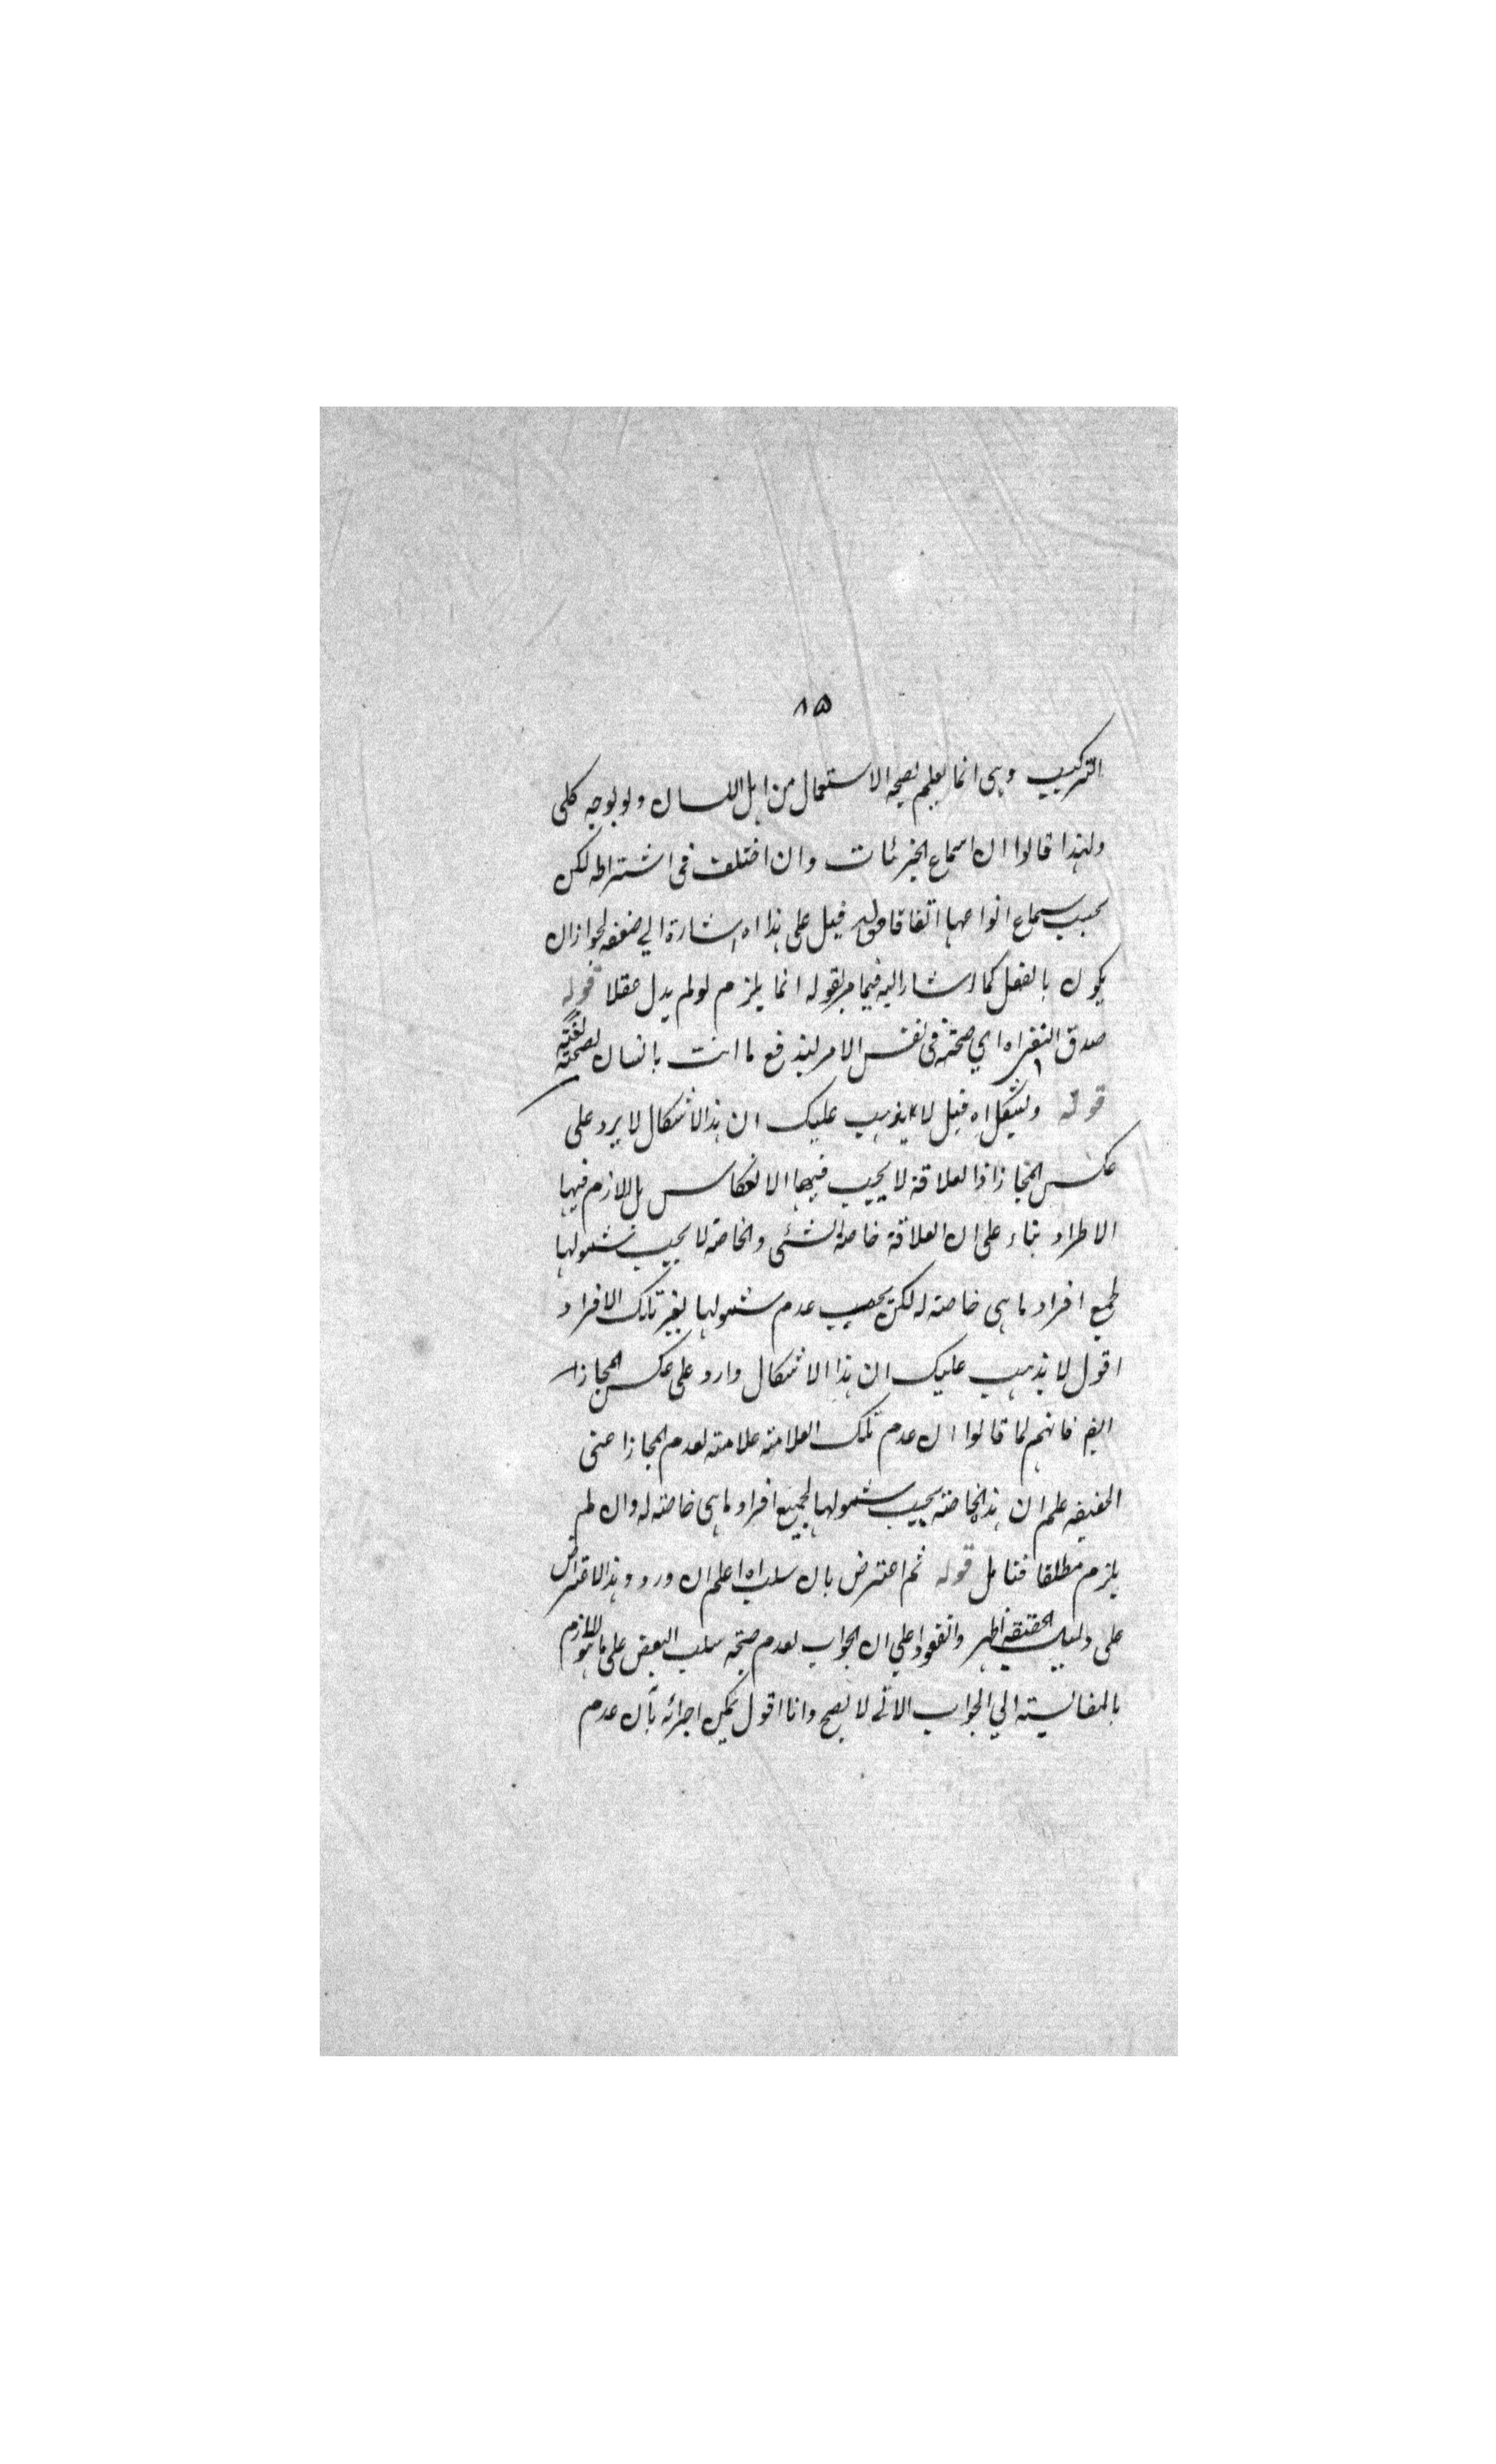 ٨٥
التركيب وهى انما يعلم بصحة الاستعمال من اهل اللسان ولو بوجه كلى
ولهذا قالوا ان سماع الجزئيات وان اختلف فى اشتراطه لكن
يجب سماع انواعها اتفاقا قوله قيل على هذا اه اشارة الي ضعفه لجواز ان
يكون بالفعل كما اشار اليه فيما مر بقوله انما يلزم لو لم يدل عقلا قوله
صدق النفى اه اي صحته فى نفس الامر ليندفع ما انت بانسان لصحته لغة
قوله ويشكل اه قيل لا يذهب عليك ان هذا الاشكال لا يرد على
عكس المجاز اذ العلاقة لا يجب فيها الانعكاس بل اللازم فيها
الاطراد بناء على ان العلاقة خاصة الشئى والخاصة لا يجب شمولها
لجميع افراد ما هى خاصة له لكن يجب عدم شمولها لغير تلك الافراد
اقول لا يذهب عليك ان هذا الاشكال وارد على عكس المجاز
ايضا فانهم لما قالوا ان عدم تلك العلامة علامة لعدم المجاز اعنى
الحقيقة علم ان هذه الخاصة يجب شمولها لجميع افراد ما هى خاصة له وان لم
يلزم مطلقا فتامل قوله ثم اعترض بان سلب اه اعلم ان ورود هذا الاعتراض
على دليل الحقيقة اظهر واتفقوا علي ان الجواب لعدم صحة سلب البعض على ما هو اللازم
بالمقايسة الي الجواب الاتى لا يصح وانا اقول يمكن اجرائه بأن عدم